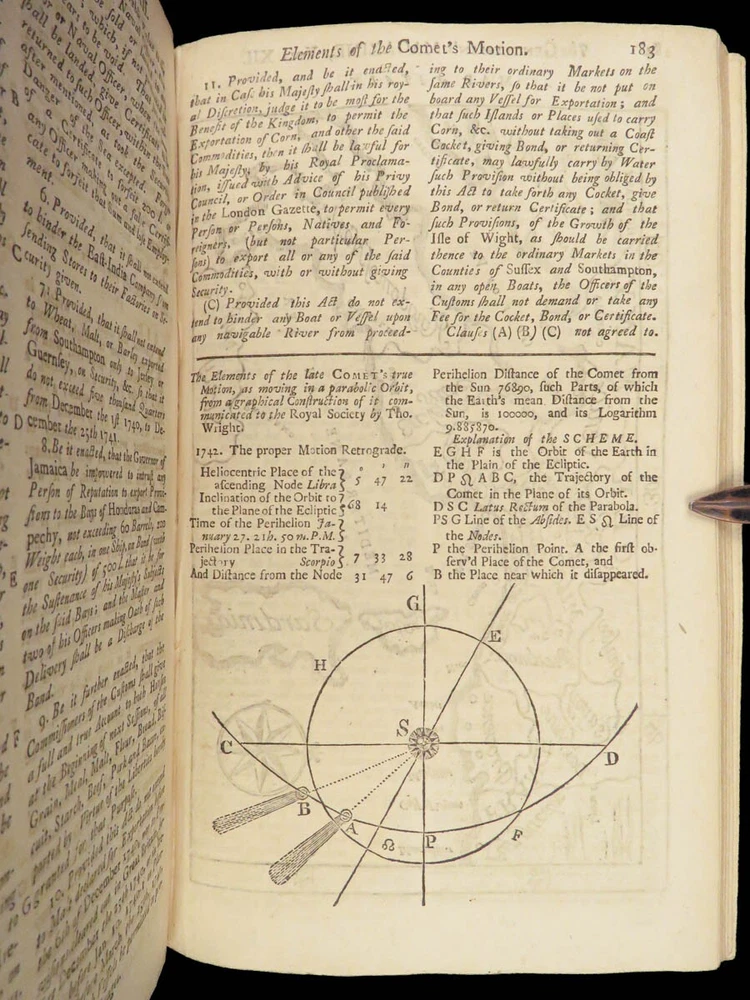 Elements of the Comet's Motion. 183
11. Provided, and be it enacted,
that in Case his Majesty shall in his roy-
al Discretion, judge it to be most for the
Benefit of the Kingdom, to permit the
Exportation of Corn, and other the said
Commodities, then it shall be lawful for
his Majesty, by his Royal Proclama-
tion, issued with Advice of his Privy
Council, or Order in Council published
in the London Gazette, to permit every
Person or Persons, Natives and Fo-
reigners, (but not particular Per-
sons) to export all or any of the said
Commodities, with or without giving
Security.
(C) Provided this Act do not ex-
tend to hinder any Boat or Vessel upon
any navigable River from proceed-
ing to their ordinary Markets on the
same Rivers, so that it be not put on
board any Vessel for Exportation; and
that such Islands or Places used to carry
Corn, &c. without taking out a Coast
Cocket, giving Bond, or returning Cer-
tificate, may lawfully carry by Water
such Provision without being obliged by
this Act to take forth any Cocket, give
Bond, or return Certificate; and that
such Provisions, of the Growth of the
Isle of Wight, as should be carried
thence to the ordinary Markets in the
Counties of Sussex and Southampton,
in any open Boats, the Officers of the
Customs shall not demand or take any
Fee for the Cocket, Bond, or Certificate.
Clauses (A) (B) (C) not agreed to.
The Elements of the late COMET's true
Motion, as moving in a parabolic Orbit,
from a graphical Construction of it com-
municated to the Royal Society by Tho.
Wright.
1742. The proper Motion Retrograde.
° ' "
Heliocentric Place of the
ascending Node Libra 5 47 22
Inclination of the Orbit to
the Plane of the Ecliptic 68 14
Time of the Perihelion Ja-
nuary 27. 21h. 50 m. P.M.
Perihelion Place in the Tra-
jectory Scorpio 7 33 28
And Distance from the Node 31 47 6
Perihelion Distance of the Comet from
the Sun 76890, such Parts, of which
the Earth's mean Distance from the
Sun, is 100000, and its Logarithm
9.885870.
Explanation of the SCHEME.
E G H F is the Orbit of the Earth in
the Plain of the Ecliptic.
D P ☊ A B C, the Trajectory of the
Comet in the Plane of its Orbit.
D S C Latus Rectum of the Parabola.
P S G Line of the Absides. E S ☊ Line of
the Nodes.
P the Perihelion Point. A the first ob-
serv'd Place of the Comet, and
B the Place near which it disappeared.
G
E
H
S
C
D
B
A
☊
P
F
6. Provided, that it shall not extend
to hinder the East-India Company from
sending Stores to their Factories on Se-
curity given.
7. Provided, that it shall not extend
to Wheat, Malt, or Barley exported
from Southampton only to Jersey or
Guernsey, on Security, &c. so that it
do not exceed five thousand Quarters
from December the 1st 1740, to De-
cember the 25th 1741.
8. Be it enacted, that the Governor of
Jamaica be impowered to intrust any
Person of Reputation to export Provi-
sions to the Bays of Honduras and Cam-
pechy, not exceeding 60 Barrels, 200
Weight each, in one Ship, on Bond (with
one Security) of 500l. that it is for
the Sustenance of his Majesty's Subjects
on the said Bays; and the Master and
two of his Officers making Oath of such
Delivery shall be a Discharge of the
Bond.
9. Be it further enacted, that the
Commissioners of the Customs shall give
a full and true Account to both Houses
at the Beginning of next Sessions, of all